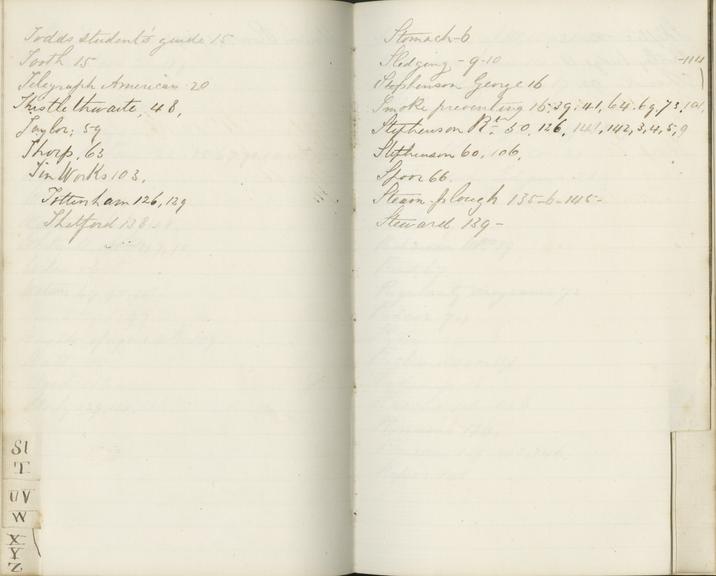 Todds student's guide 15
Tooth 15
Telegraph American 20
Thistlethwaite, 48,
Taylor, 59
Thorp, 63
Tin Works 103,
Tottenham 126, 129
Thetford 138
SI
T
UV
W
X
Y
Z
Stomach - 6
Sledging - 9-10
Stephenson George 16
-114
Smoke preventing 16, 39, 41, 64, 69, 73, 101,
Stephenson Rt. 50, 126, 141, 142, 3, 4, 5, 9
Stephenson 60, 106,
Spoor 66,
Steam-plough 135-6-145-
Steward 139-